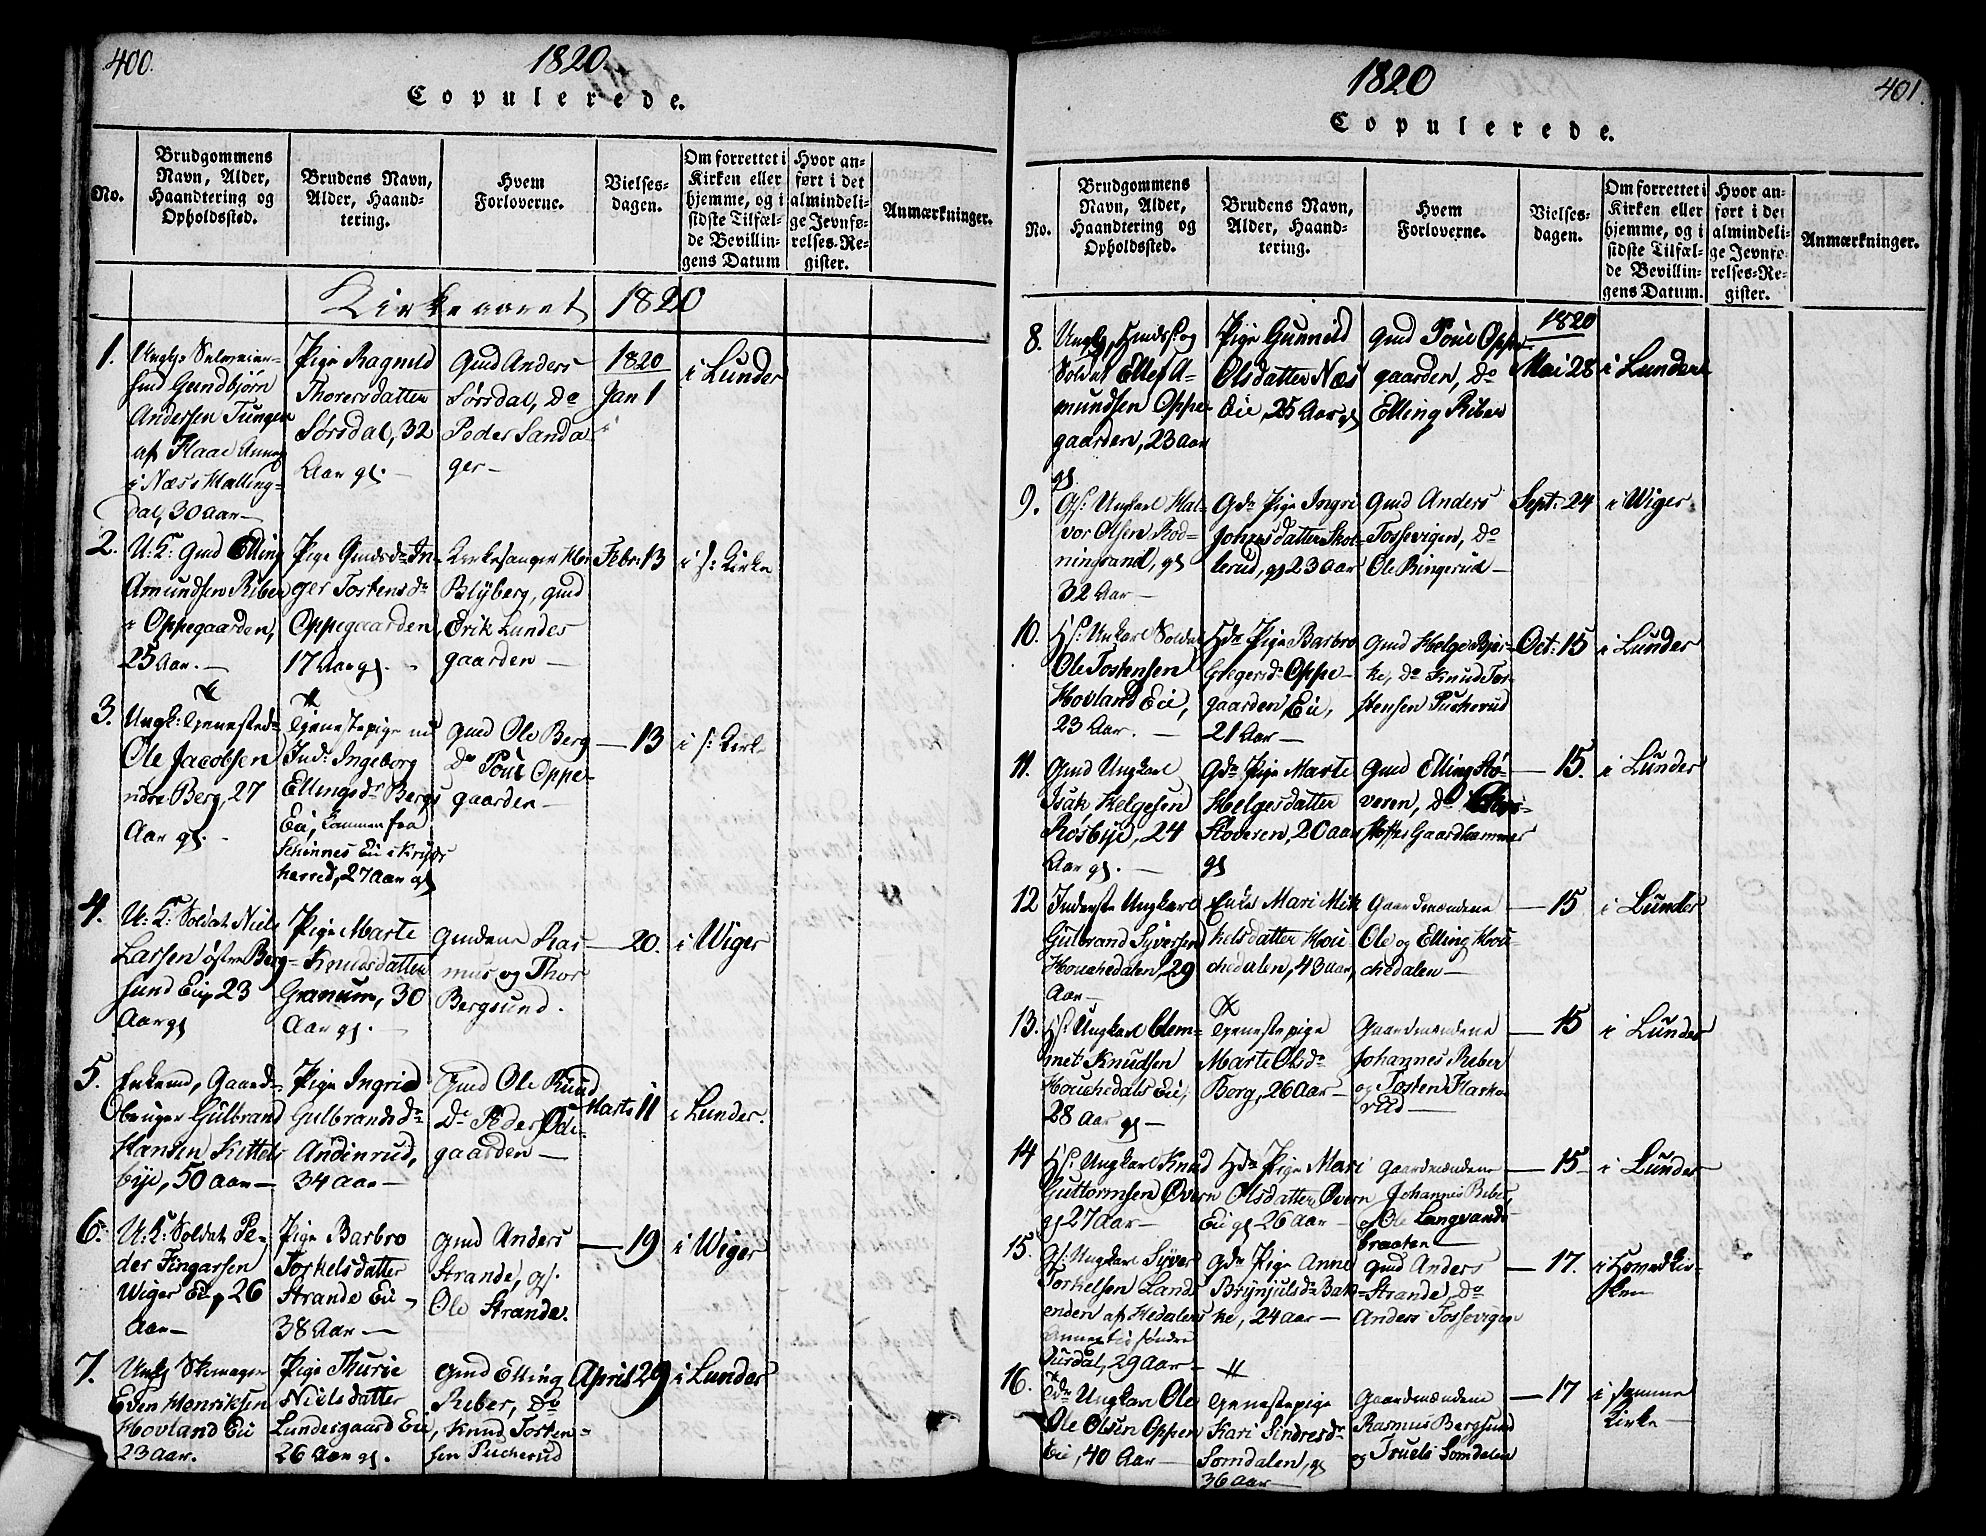 400.
1820.
Copulerede.
No.
Brudgommens Navn, Alder, Haandtering og Opholdssted.
Brudens Navn, Alder, Haandtering.
Hvem Forloverne.
Vielsesdagen.
Om forrettet i Kirken eller hjemme, og i sidste Tilfælde Bevillingens Datum
Hvor anført i det almindelige Jevnførelses-Register.
Anmærkninger.
Kirkeaaret 1820
1.
Gundbjørn
Andersen Tungen
af Flaae Annex
i Næs's Halling-
dal, 30 Aar
Pige Ragnild
Thoresdatter
Sørsdal, 32
Aar gl.
Gmd Anders
Sørsdal, Do
Peder Sanda
ger
1820
Jan 1
i Lunder
2.
U: K: Gmd Elling
Amundsen Ruber
i Oppegaarden,
25 Aar.
Pige Gmdsdr In-
ger Tostensdr
Oppegaarden,
17 Aar gl.
Kirkesanger Hr
Blyberg, gmd
Erik Lundes
gaarden
Febr: 13
i s: Kirke
3.
Ungk: Tjenestedr
Ole Jacobsen
nDre Berg, 27
Aar gl.
Tjenestepige nu
Ind: Ingeborg
Ellingsdr Bergs
Eii, kommen fra
Schinnes Eii i Kryds
herred, 27 Aar gl
Gmd Ole Berg
Do Poul Oppe-
gaarden
13
i s: Kirke
4.
U: K: Soldat Niels
Larsen østre Berg-
sund Eii, 23
Aar gl
Pige Marte
Knudsdatter
Granum, 30
Aar gl.
Gmdene Ras-
mus og Thor
Bergsund.
20.
i Wiger
5.
Enkemd, Gaard-
bruger Gulbrand
Hansen Kittels
bye, 50 Aar
Pige Ingrid
Gulbrandsdr
Andinrud,
34 Aar
Gmd Ole Ruud
Do Peder Ødi-
gaarden
Marts 11
i Lunder.
6.
U: K: Soldat Pe-
der Fingarsen
Wiger Eii, 26
Aar
Pige Barbro
Torkelsdatter
Strande Eii
38 Aar
Gmd Anders
Strande, gs.
Ole Strande.
19
i Wiger
7.
Ungk Skomager
Even Henriksen
Hovland Eii
23 Aar.
Pige Thurie
Nielsdatter
Lundesgaard Eii,
26 Aar gl.
Gmd Elling
Ruber, Do
Knud Tosten-
sen Pucherud
April 29
i Lunder
401.
1820
Copulerede.
No.
Brudgommens Navn, Alder, Haandtering og Opholdssted.
Brudens Navn, Alder, Haandtering.
Hvem Forloverne.
Vielsesdagen.
Om forrettet i Kirken eller hjemme, og i sidste Tilfælde Bevillingens Datum.
Hvor anført i det almindelige Jevnførelses-Register.
Anmærkninger.
8.
Soldat Ellef A-
mundsen Oppe-
gaarden, 23 Aar
gl
Pige Gunnild
Olsdatter Næs
Eie, 25 Aar gl
Gmd Poul Oppe-
gaarden, Do
Elling Ruber
1820
Mai 28
i Lunder
9.
Gs: Ungkarl Hal-
vor Olsen Rod-
ningsand, gl
32 Aar
Gdr Pige Ingri
Johnsdatter Skol-
lerud, gl 23 Aar
Gmd Anders
Tossevigen, Do
Ole Ringerud
Sept: 24
i Wiger
10.
Hs: Ungkarl Soldat
Ole Tostensen
Hovland Eii,
23 Aar.
Hdr Pige Barbro
Holgersdr Oppe-
gaarden Eii,
21 Aar
Gmd Helge Bjer-
ke, do Knud Tor-
stensen Puckerud
Oct: 15
i Lunder
11.
Gmd Ungkarl
Isak Helgesen
Røsbye, 24
Aar gl.
Gdr Pige Marte
Helgesdatter
Stoveren, 20 Aar
gl
Gmd Elling Stø-
veren, Do Chri-
stoffer Gaardhammer
15.
i Lunder
12
Inderste Ungkarl
Gulbrand Syversen
Houchedalen, 29
Aar
Enke Mari Mik
kelsdatter Hou
chedalen, 43 Aar,
Gaardmændene
Ole og Elling Hou-
chedalen
15
i Lunder
13.
Hs: Ungkarl Clem-
met Knudsen
Houchedals Eii,
28 Aar gl
Tjenestepige
Marte Olsdr
Berg, 26 Aar
Gaardmændene
Johannes Ruber
og Tosten Flaske-
rud
15
i Lunder
14
Hs: Ungkarl Knud
Guttormsen Øvern
gl 27 Aar
Hdr Pige Mari
Olsdatter Øvern
Eii gl 26 Aar
Gaardmændene
Johannes Ruber,
og Ole Langvands-
braaten
15
i Lunder
15.
Gs: Ungkarl Syver
Torkelsen Lands
enden af Hedalens
Annex til søndre
Aurdal, 29 Aar
Gdr Pige Anne
Brynjulsdr Bak-
ke, 24 Aar
Gmd Anders
Strande, Do
Anders Tossevigen
17.
i Hovedkir-
ken
16.
Tdr Ungkarl Ole
Ole Olsen Oppen
Eii, 40 Aar
Tjenestepige
Kari Sindresdr
Somdalen, gl
36 Aar
Gaardmændene
Rasmus Bergsund
og Truels Somdalen
17
i samme
Kirke